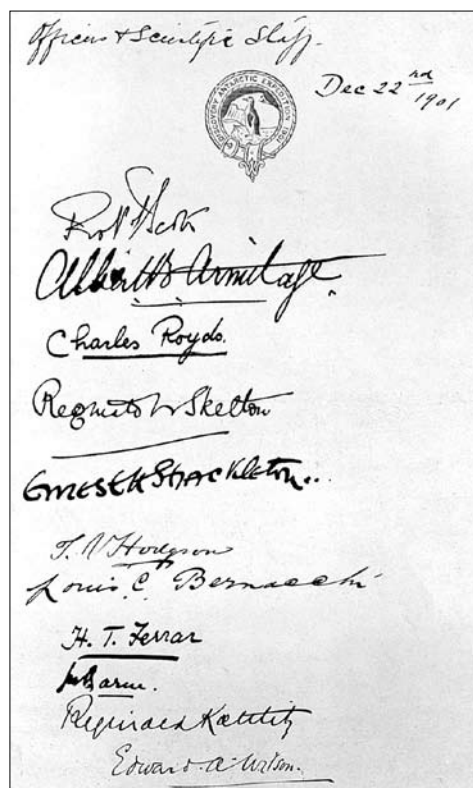 Officers & Scientific Staff.
Dec 22nd 1901
DISCOVERY ANTARCTIC EXPEDITION 1901
Robt F Scott
Albert B Armitage.
Charles Royds.
Reginald W Skelton
Ernest H Shackleton..
T. V Hodgson
Louis C Bernacchi
H. T. Ferrar
Reginald Koettlitz
Edward. A. Wilson.